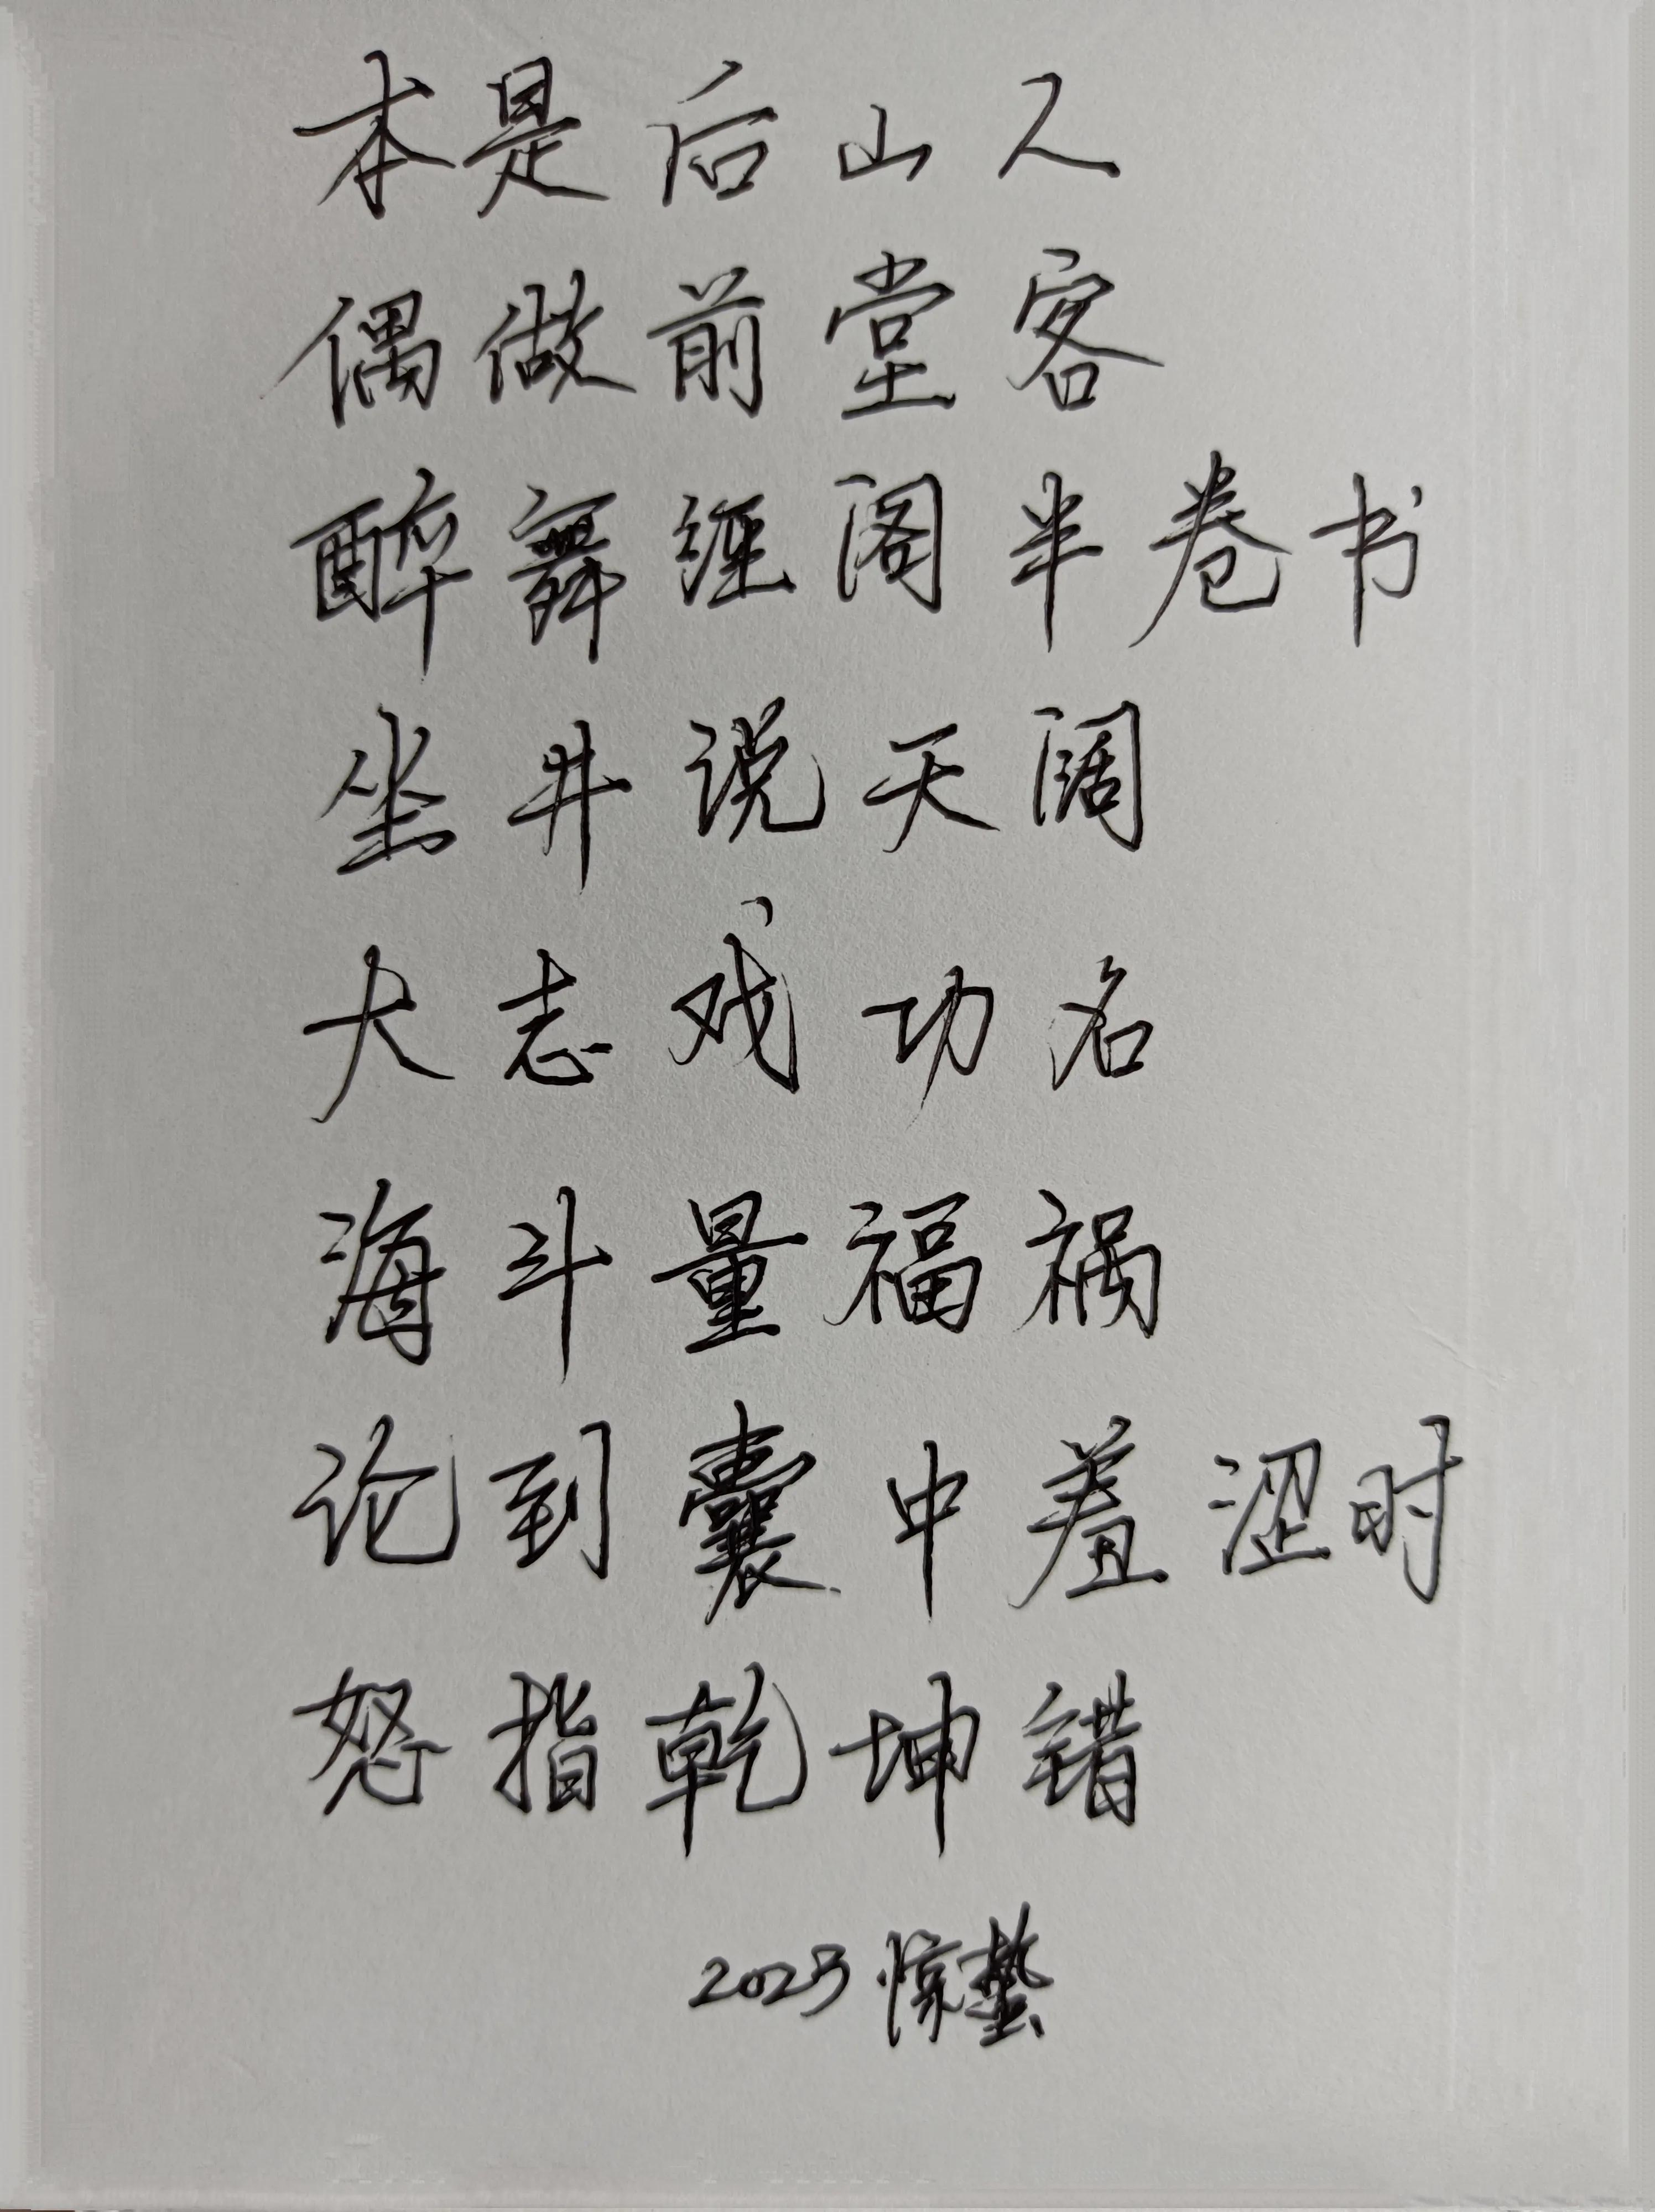 本是后山人
偶做前堂客
醉舞经阁半卷书
坐井说天阔
大志戏功名
海斗量福祸
论到囊中羞涩时
怒指乾坤错
2023惊蛰